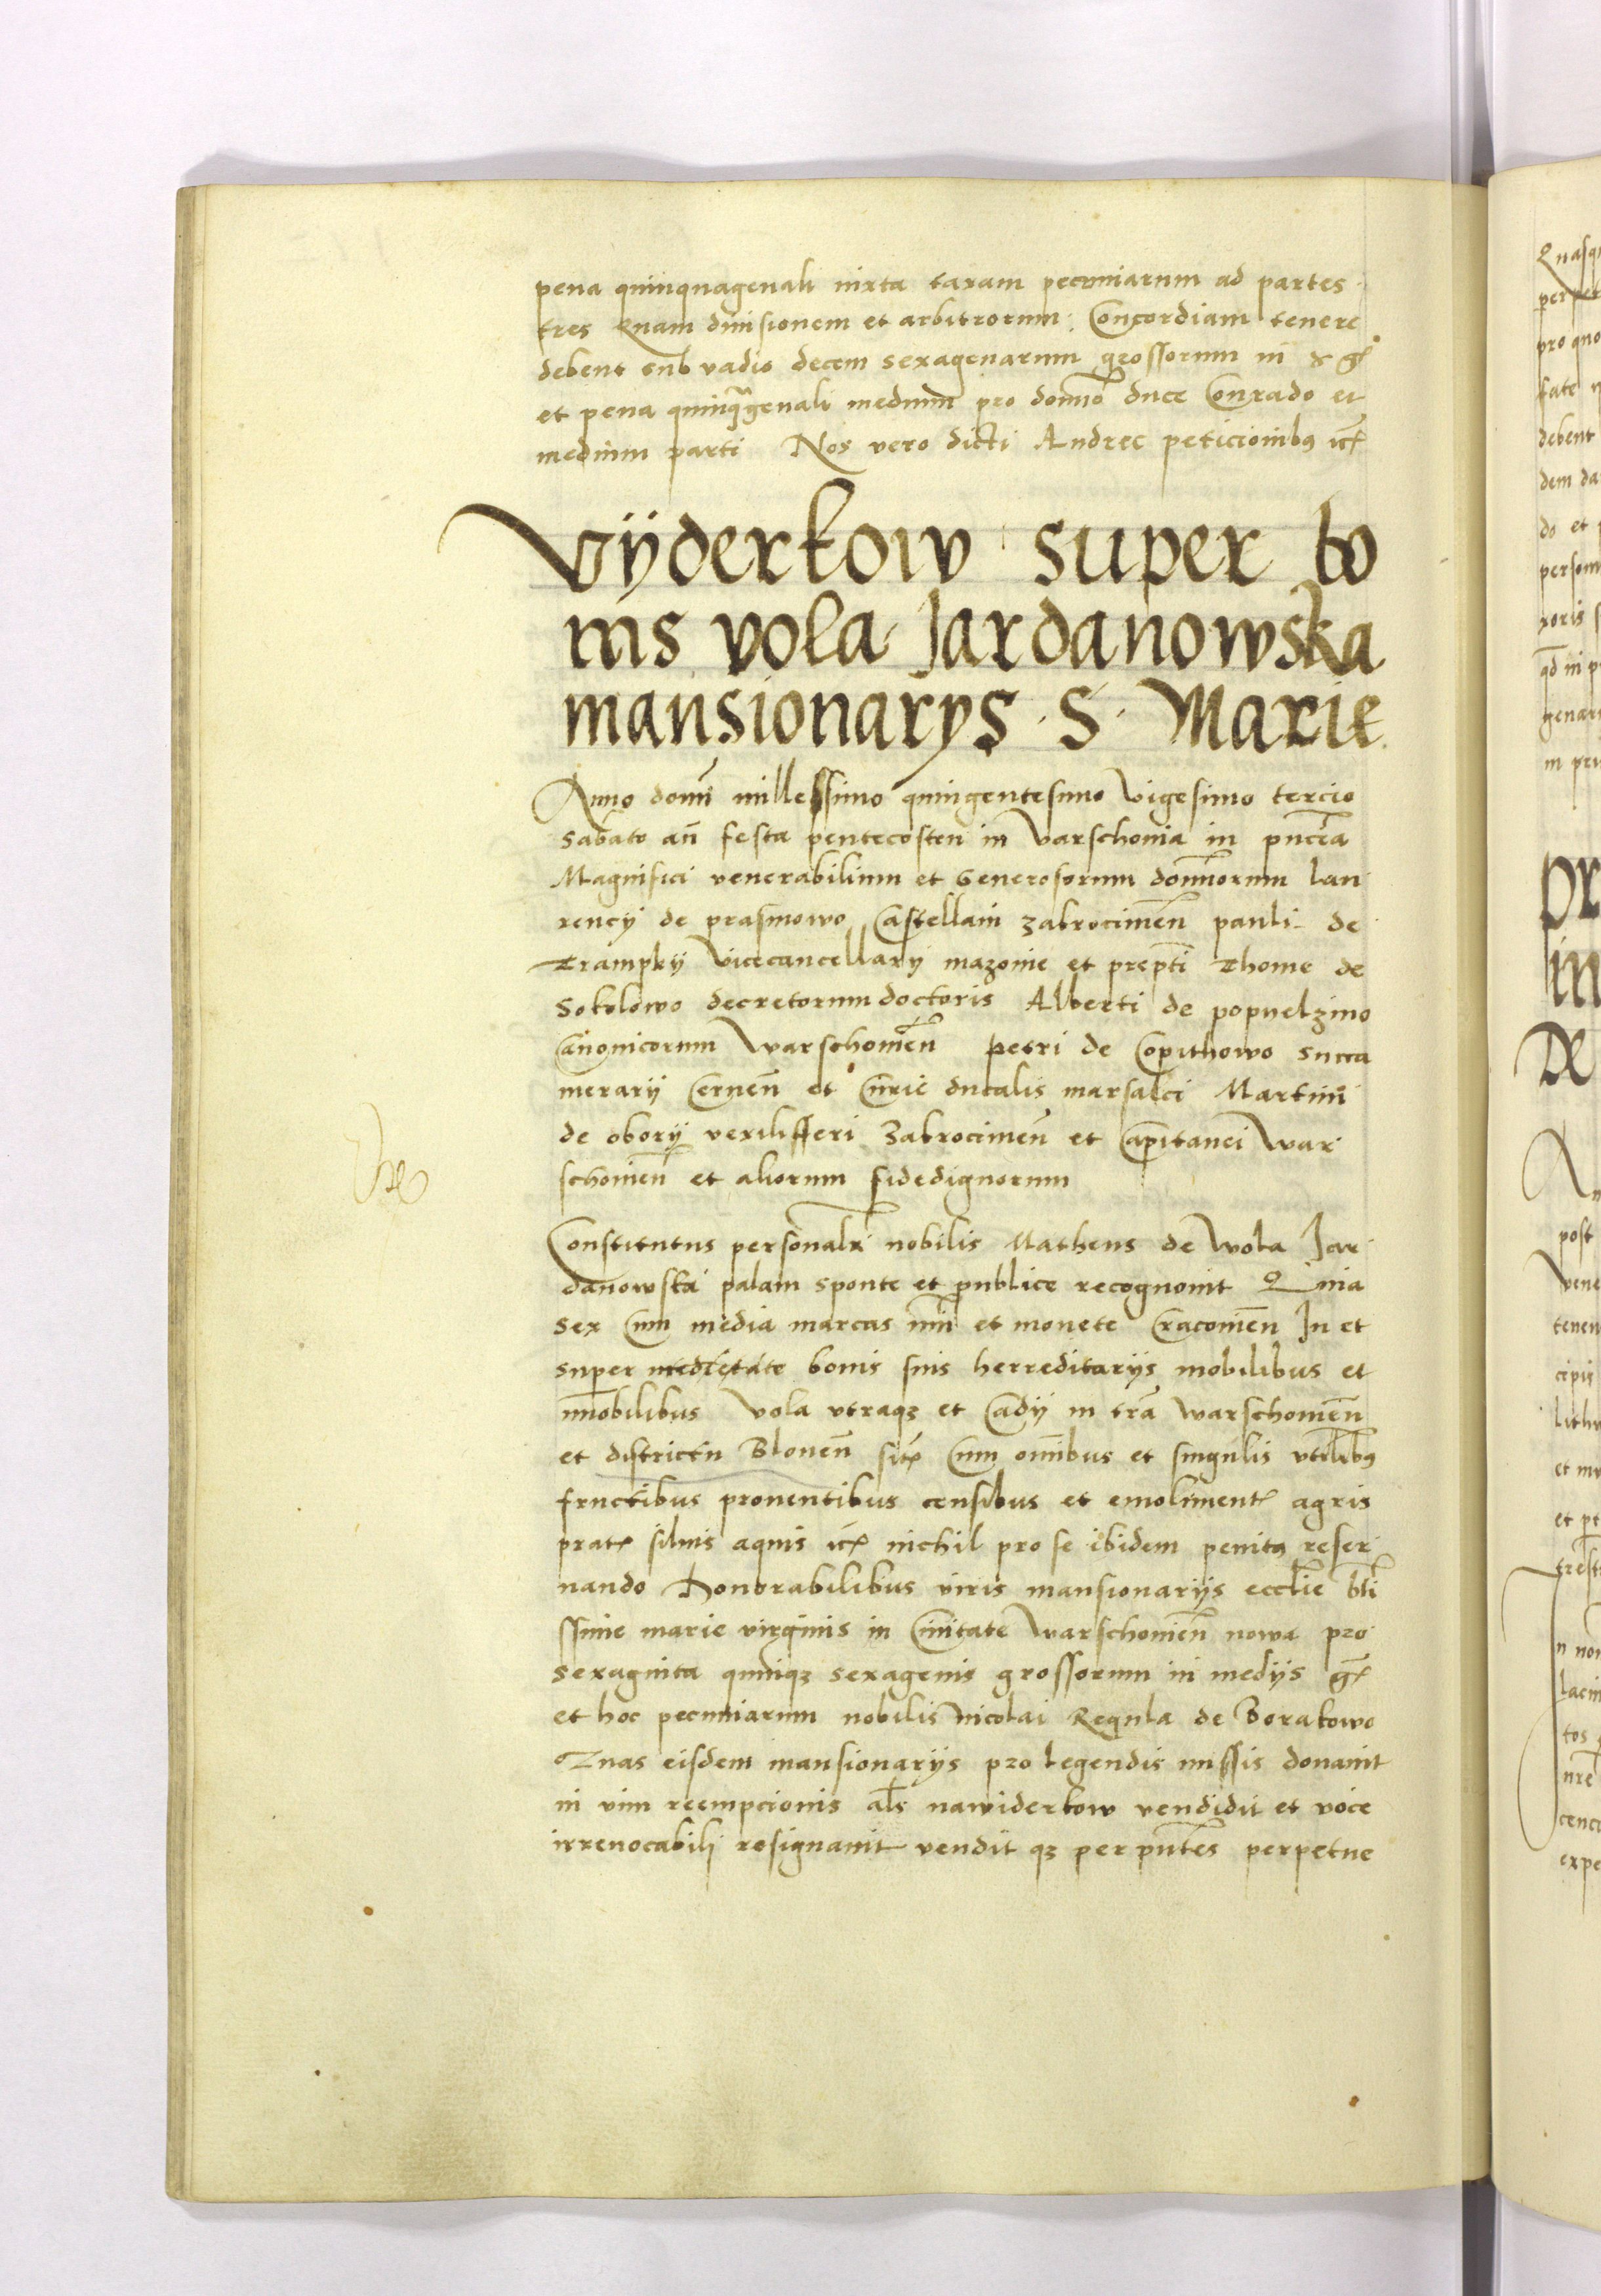 pena quinquagenali iuxta taxam pecuniarum ad partes
tres Quam diuisionem et arbitrorum Concordiam tenere
debent sub vadio decem sexagenarum grossorum in x gͬ
et pena quinqᵃgenali medium pro domīo duce Conrado et
medium parti Nos vero dicti Andree peticionibꝰ ꝛcͬ
Vÿderkow super bo
nis vola Jardanowska
mansionarys · S · Marie
Anno domī millessimo quingentesimo Vigesimo tercio
sabato añ festa pentecosten in Varschouia in pn̄cia
Magnifici venerabilium et Generosorum domīorum lau
rencÿ de prasmowo Castellani zakrocimen̄ pauli de
Trampkÿ Vicecancellarÿ mazouie et prep̄ti Thome de
Sokolowo decretorum doctoris Alberti de popuelzino
Canonicorum Warschouien̄ Petri de Copithowo succa
merarÿ Cernen̄ et Curie ducalis marsalci Martini
de oborÿ vexilifferi Zakrocimen̄ et Capitanei War
schouien̄ et aliorum fidedignorum
Constitutus personalr̄ nobilis Matheus de Wola Jar
danowska palam sponte et publice recognouit Quia
sex Cum media marcas nūi et monete Cracouien̄ In et
super medietate bonis suis herreditarÿs mobilibus et
īmobilibus Vola vtraqꝫ et Cadÿ in trā Warschouien̄
et districtu Blonen̄ sitͬ Cum om̄ibus et singulis vtilibꝰ
fructibus prouentibus censibus et emolimentͬ agris
pratͬ siluis aquis ꝛcͬ nichil pro se ibidem penitꝰ reser
uando Honorabilibus viris mansionarÿs eccl̄ie bt̄i
ssime marie virginis in Ciuitate Warschouien̄ nowa pro
sexaginta quinqꝫ sexagenis grossorum in medÿs gͬ
et hoc pecuniarum nobilis Nicolai Regula de Borakowo
Quas eisdem mansionarÿs pro legendis missis donauit
in vim reempcionis al̄s nawiderkow vendidit et voce
irreuocabili resignauit vendit qꝫ per pn̄tes perpetue